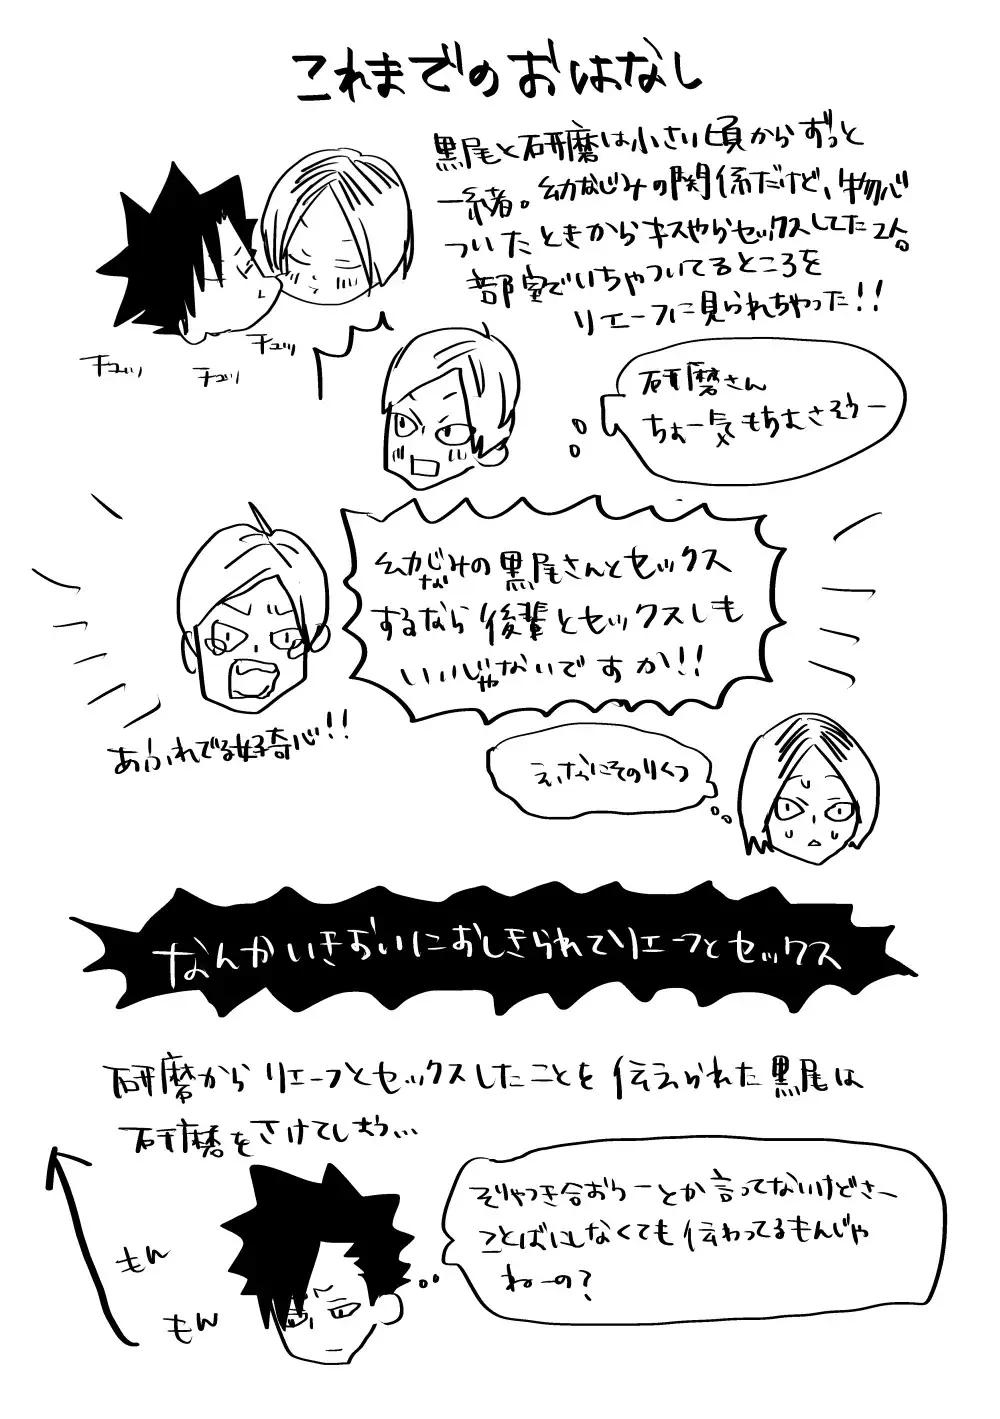 これまでのおはなし
黒尾と研磨は小さい頃からずっと
一緒。幼なじみの関係だけど、物心
ついたときからキスやらセックスしてた2人。
部室でいちゃついてるところを
リエーフに見られちゃった!!
チュッ
チュッ
チュッ
研磨さん
ちょー気もちよさそうー
幼なじみの黒尾さんとセックス
するなら後輩とセックスしも
いいじゃないですか!!
あふれでる好奇心!!
えっなにそのりくつ
なんかいきおいにおしきられてリエーフとセックス
研磨からリエーフとセックスしたことを伝えられた黒尾は
研磨をさけてしまう…
もん
もん
そりゃつき合おうーとか言ってないけどさー
ことばにしなくても伝わってるもんじゃ
ねーの?